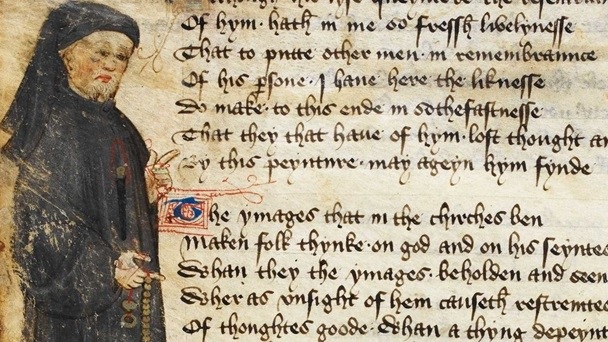 his lyfe queynt be the
Of hym · hath in me so fressh lyvelynesse
That to putte other men in remembraunce
Of his ꝑsone · I have here the liknesse
Do make · to this ende in sothefastnesse
That they that have of hym · lost thought an
By this peynture · may ageyn hym fynde
The ymages that in the chirches ben
Maken folk thynke · on god and on his seynte
Whan they the ymages · beholden and seen
Wher as unsight of hem causeth restreynte
Of thoughtes goode · Whan a thyng depeynt